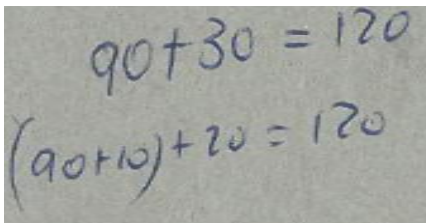 90+30 = 120
(90+10)+20 = 120